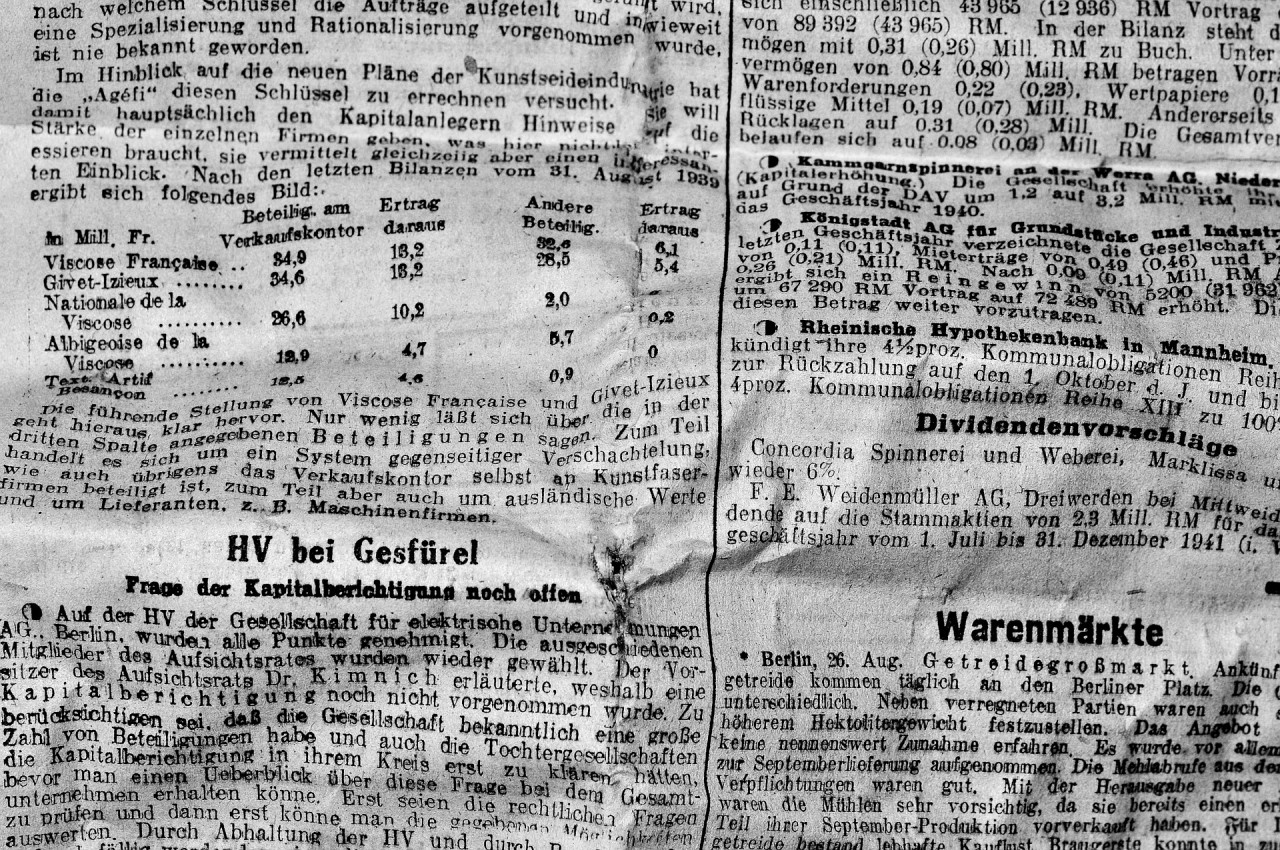 nach welchem Schlüssel die Aufträge aufgeteilt und inwieweit
eine Spezialisierung und Rationalisierung vorgenommen wurde,
ist nie bekannt geworden.
Im Hinblick auf die neuen Pläne der hat
die „Agéfi“ diesen Schlüssel zu errechnen versucht. Sie will
damit hauptsächlich den Kapitalanlegern Hinweise die
Stärke der einzelnen Firmen geben, was hier
essieren braucht, sie vermittelt gleichzeitig aber einen interessan-
ten Einblick. Nach den letzten Bilanzen vom 31. August 1939
ergibt sich folgendes Bild:
In Mill. Fr. Beteilig. am Verkaufskontor Ertrag daraus Andere Beteilig. Ertrag daraus
Viscose Française .. 34,9 13,2 32,6 6,1
Givet-Izieux ........ 34,6 13,2 28,5 5,4
Nationale de la
Viscose .......... 26,6 10,2 2,0 0,2
Albigeoise de la
Viscose .......... 12,9 4,7 5,7 0
Text. Artif
Besançon ........ 12,5 4,6 0,9
Die führende Stellung von Viscose Française und Givet-Izieux
geht hieraus klar hervor. Nur wenig läßt sich über die in der
dritten Spalte angegebenen Beteiligungen sagen. Zum Teil
handelt es sich um ein System gegenseitiger Verschachtelung,
wie auch übrigens das Verkaufskontor selbst an Kunstfaser-
firmen beteiligt ist, zum Teil aber auch um ausländische Werte
und um Lieferanten, z. B. Maschinenfirmen.
HV bei Gesfürel
Frage der Kapitalberichtigung noch offen
Auf der HV der Gesellschaft für elektrische Unternehmungen
AG., Berlin, wurden alle Punkte genehmigt. Die ausgeschiedenen
Mitglieder des Aufsichtsrates wurden wieder gewählt. Der Vor-
sitzer des Aufsichtsrats Dr. Kimnich erläuterte, weshalb eine
Kapitalberichtigung noch nicht vorgenommen wurde. Zu
berücksichtigen sei, daß die Gesellschaft bekanntlich eine große
Zahl von Beteiligungen habe und auch die Tochtergesellschaften
die Kapitalberichtigung in ihrem Kreis erst zu klären hätten,
bevor man einen Ueberblick über diese Frage bei dem Gesamt-
unternehmen erhalten könne. Erst seien die rechtlichen Fragen
zu prüfen und dann erst könne man die gegebenen Möglichkeiten
auswerten. Durch Abhaltung der HV und durch
sich einschließlich 43 965 (12 936) RM Vortrag
von 89 392 (43 965) RM. In der Bilanz steht
mögen mit 0,31 (0,26) Mill. RM zu Buch. Unter
vermögen von 0,84 (0,80) Mill. RM betragen
Warenforderungen 0,22 (0,23), Wertpapiere
flüssige Mittel 0,19 (0,07) Mill. RM. Andererseits
Rücklagen auf 0,31 (0,28) Mill. Die
belaufen sich auf 0,08 (0,03) Mill. RM.
Kammgarnspinnerei an der Werra AG, Nieder
(Kapitalerhöhung.) Die Gesellschaft erhöhte
auf Grund der DAV um 1,2 auf 3,2 Mill. RM
das Geschäftsjahr 1940.
Königstadt AG für Grundstücke und Industr
letzten Geschäftsjahr verzeichnete die Gesellschaft
von 0,11 (0,11), Mieterträge von 0,49 (0,46) und
0,26 (0,21) Mill. RM. Nach 0,09 (0,11) Mill. RM
ergibt sich ein Reingewinn von 5200 (31 962)
um 67 290 RM Vortrag auf 72 489 RM erhöht.
diesen Betrag weiter vorzutragen.
Rheinische Hypothekenbank in Mannheim.
kündigt ihre 4½proz. Kommunalobligationen
zur Rückzahlung auf den 1. Oktober d. J. und
4proz. Kommunalobligationen Reihe XIII zu 100%
Dividendenvorschläge
Concordia Spinnerei und Weberei, Marklissa
wieder 6%.
F. E. Weidenmüller AG, Dreiwerden bei Mittweid
dende auf die Stammaktien von 2,3 Mill. RM für
geschäftsjahr vom 1. Juli bis 31. Dezember 1941 (i.
Warenmärkte
* Berlin, 26. Aug. Getreidegroßmarkt. Ankünf
getreide kommen täglich an den Berliner Platz. Die
unterschiedlich. Neben verregneten Partien waren auch
höherem Hektolitergewicht festzustellen. Das Angebot
keine nennenswert Zunahme erfahren. Es wurde vor allem
zur Septemberlieferung aufgenommen. Die Mehlabrufe aus
Verpflichtungen waren gut. Mit der Herausgabe neuer
waren die Mühlen sehr vorsichtig, da sie bereits einen
Teil ihrer September-Produktion vorverkauft haben. Für
getreide bestand lebhafte Kauflust. Braugerste konnte in